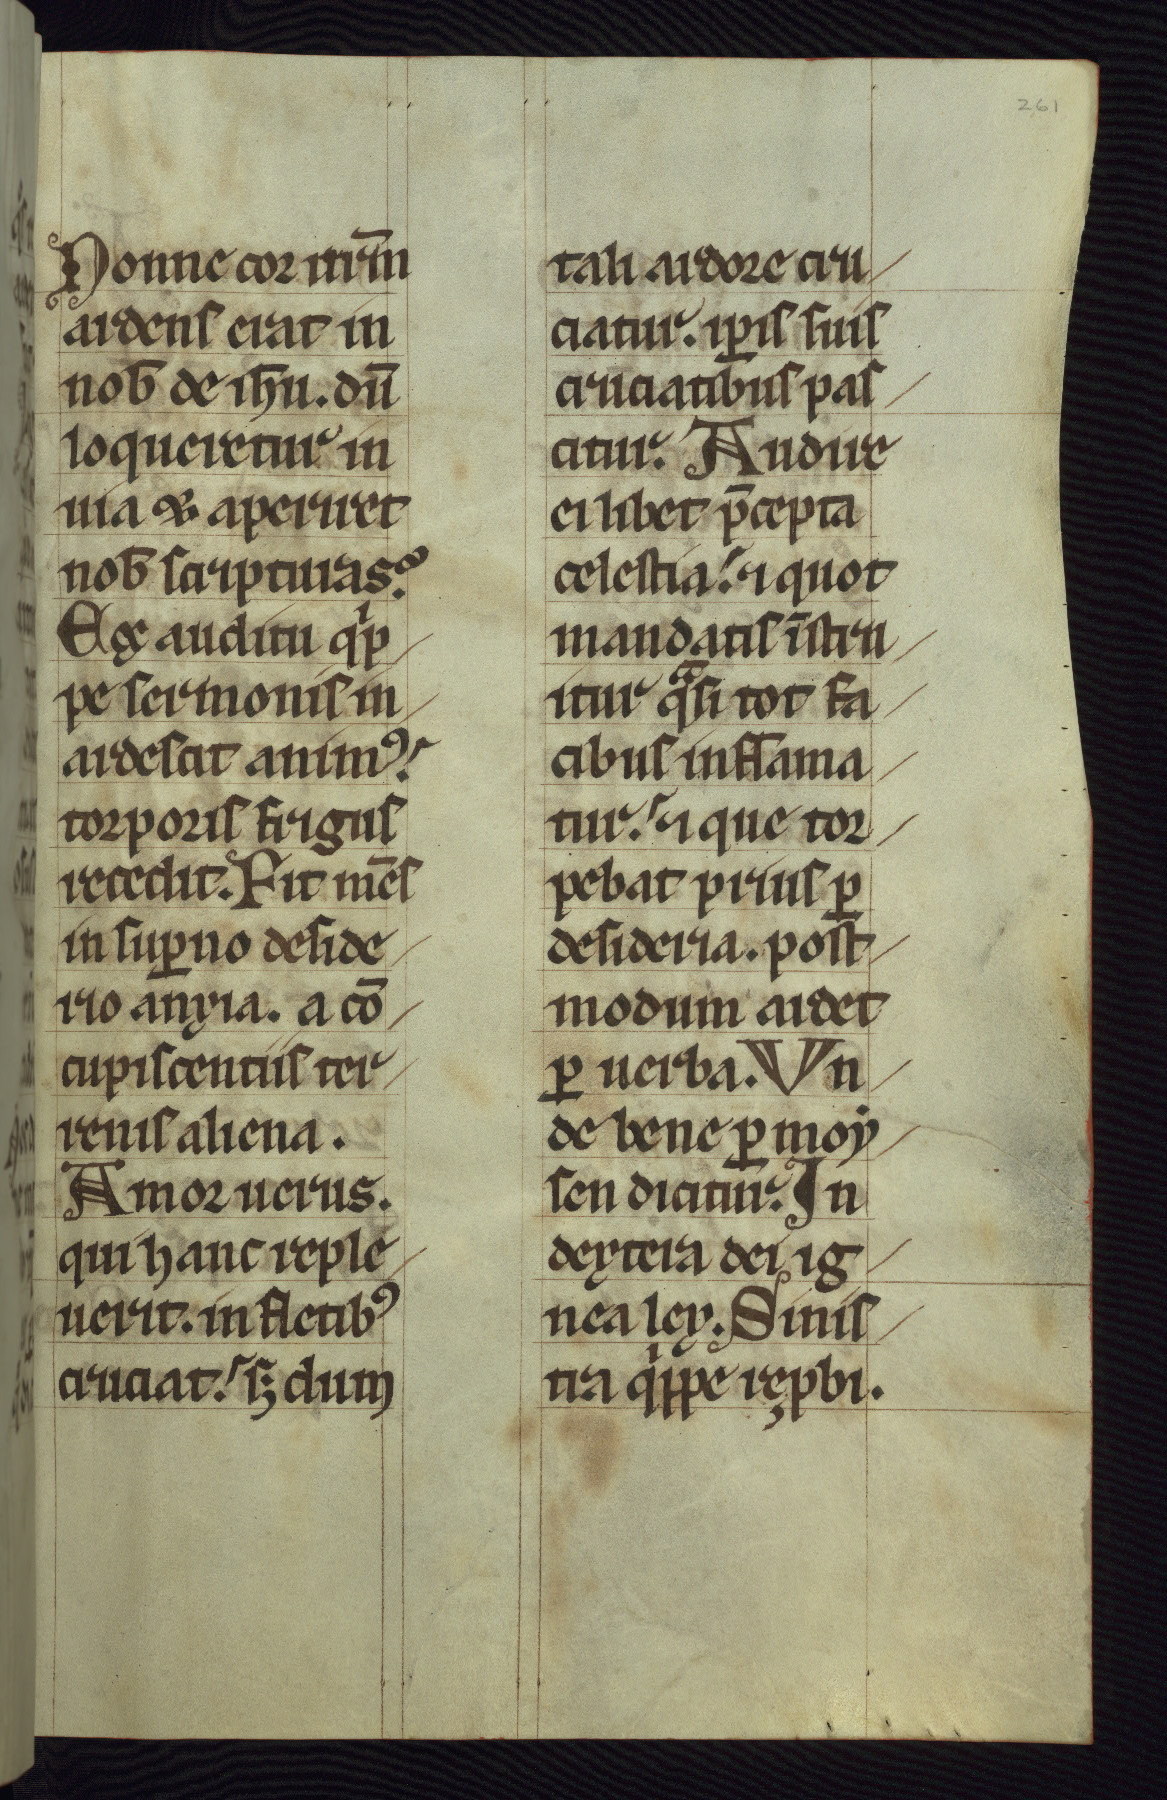 261
Nonne cor nr̄m
ardens erat in
nob̄ de ih̄u. dū
loqueretur in
uia & aperiret
nob̄ scripturas?
Ex auditu qͥp
pe sermonis in
ardescit animꝰ.
torporis frigus
recedit. Fit mēs
in suꝑno deside
rio anxia. a cō
cupiscentiis ter
renis aliena.
Amor uerus.
qui hanc reple
uerit. in fletibꝰ
cruciat. sꝫ dum
tali ardore cru
ciatur. ip̄is suis
cruciatibus pas
citur. Audire
ei libet p̄cepta
celestia. ⁊ quot
mandatis īstru
itur qͣsi tot fa
cibus inflama
tur. ⁊ que tor
pebat prius ꝑ
desideria. post
modum ardet
ꝑ uerba. Vn
de bene ꝑ moẏ
sen dicitur. In
dextera dei, ig
nea lex. Sinis
tra qͥppe rep̱bi.